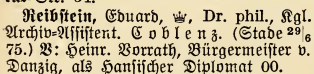 Reibstein, Eduard, ♕, Dr. phil., Kgl.
Archiv-Assistent. Coblenz. (Stade 29/6
75.) V: Heinr. Vorrath, Bürgermeister v.
Danzig, als Hansischer Diplomat 00.